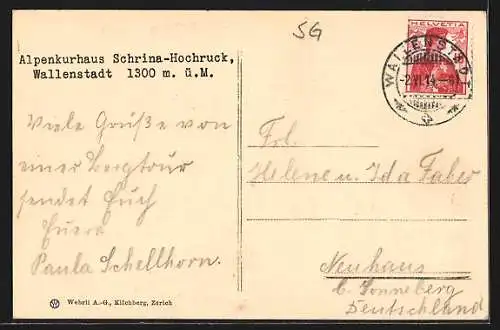 SG
Alpenkurhaus Schrina-Hochruck,
Wallenstadt 1300 m. ü.M.
HELVETIA
WALLENSTADT
-2.VI.14.-
Viele Grüße von
einer Bergtour
sendet Euch
Euere
Paula Schellhorn.
Frl.
Helene u. Ida Faber
Neuhaus
b. Sonneberg
Deutschland
Wehrli A.-G., Kilchberg, Zürich